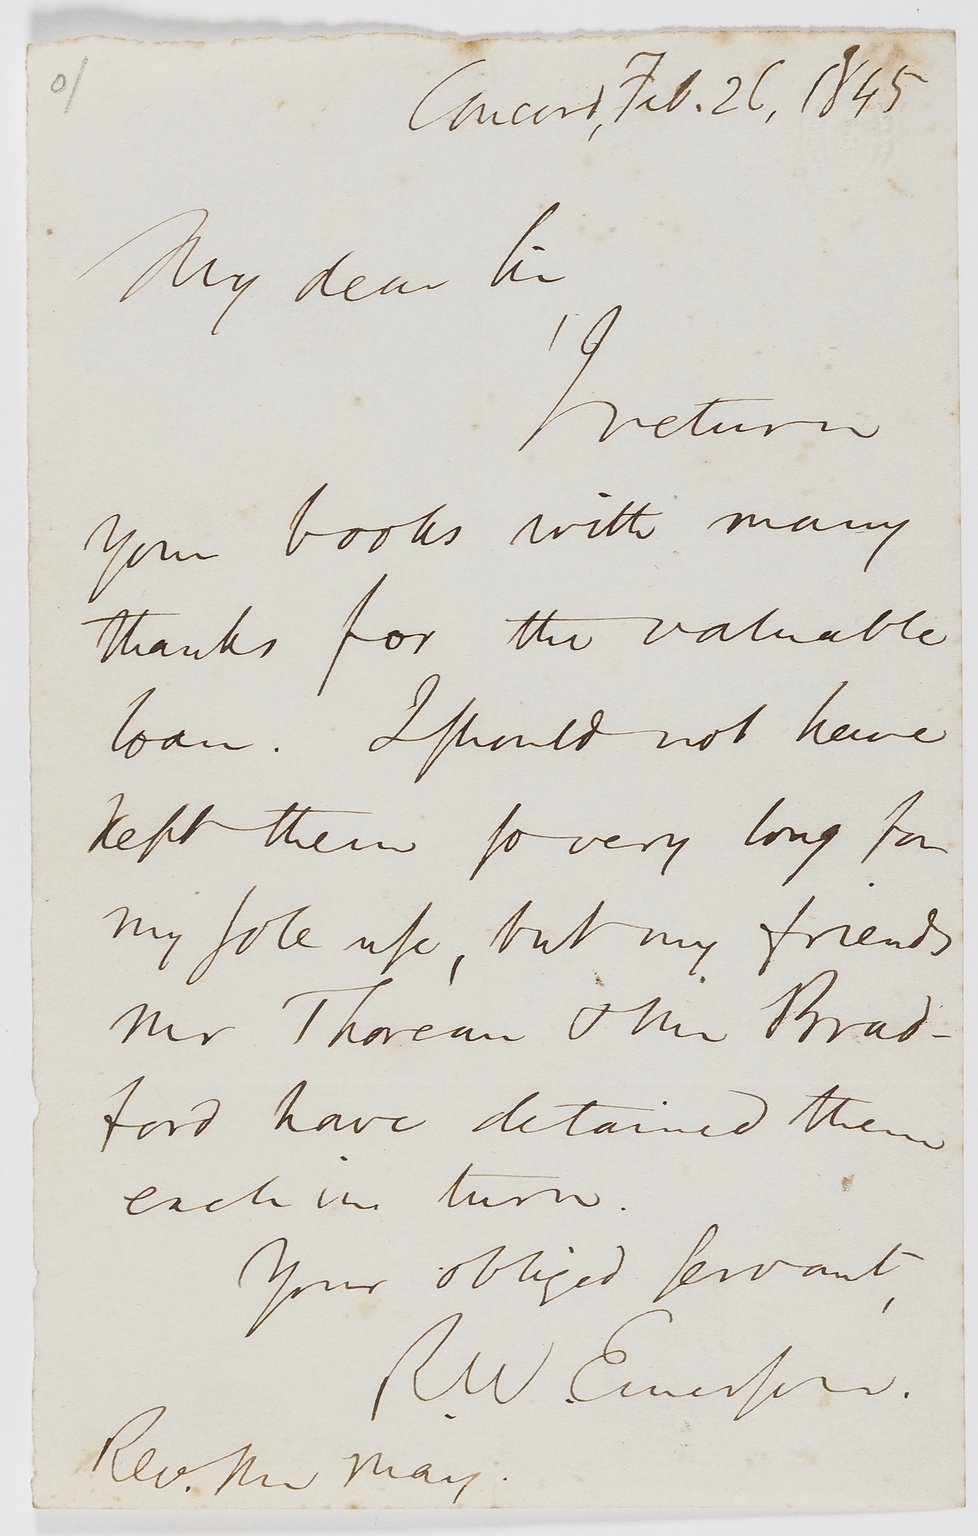 Concord, Feb. 26, 1845
My dear Sir,
I return
your books with many
thanks for the valuable
loan. I should not have
kept them so very long for
my sole use, but my friends
Mr Thoreau & Mr Brad-
ford have detained them
each in turn.
Your obliged servant,
R. W. Emerson.
Rev. Mr May.